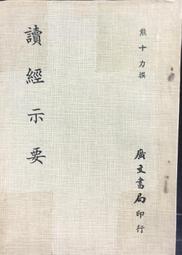 熊十力撰
讀經示要
廣文書局印行